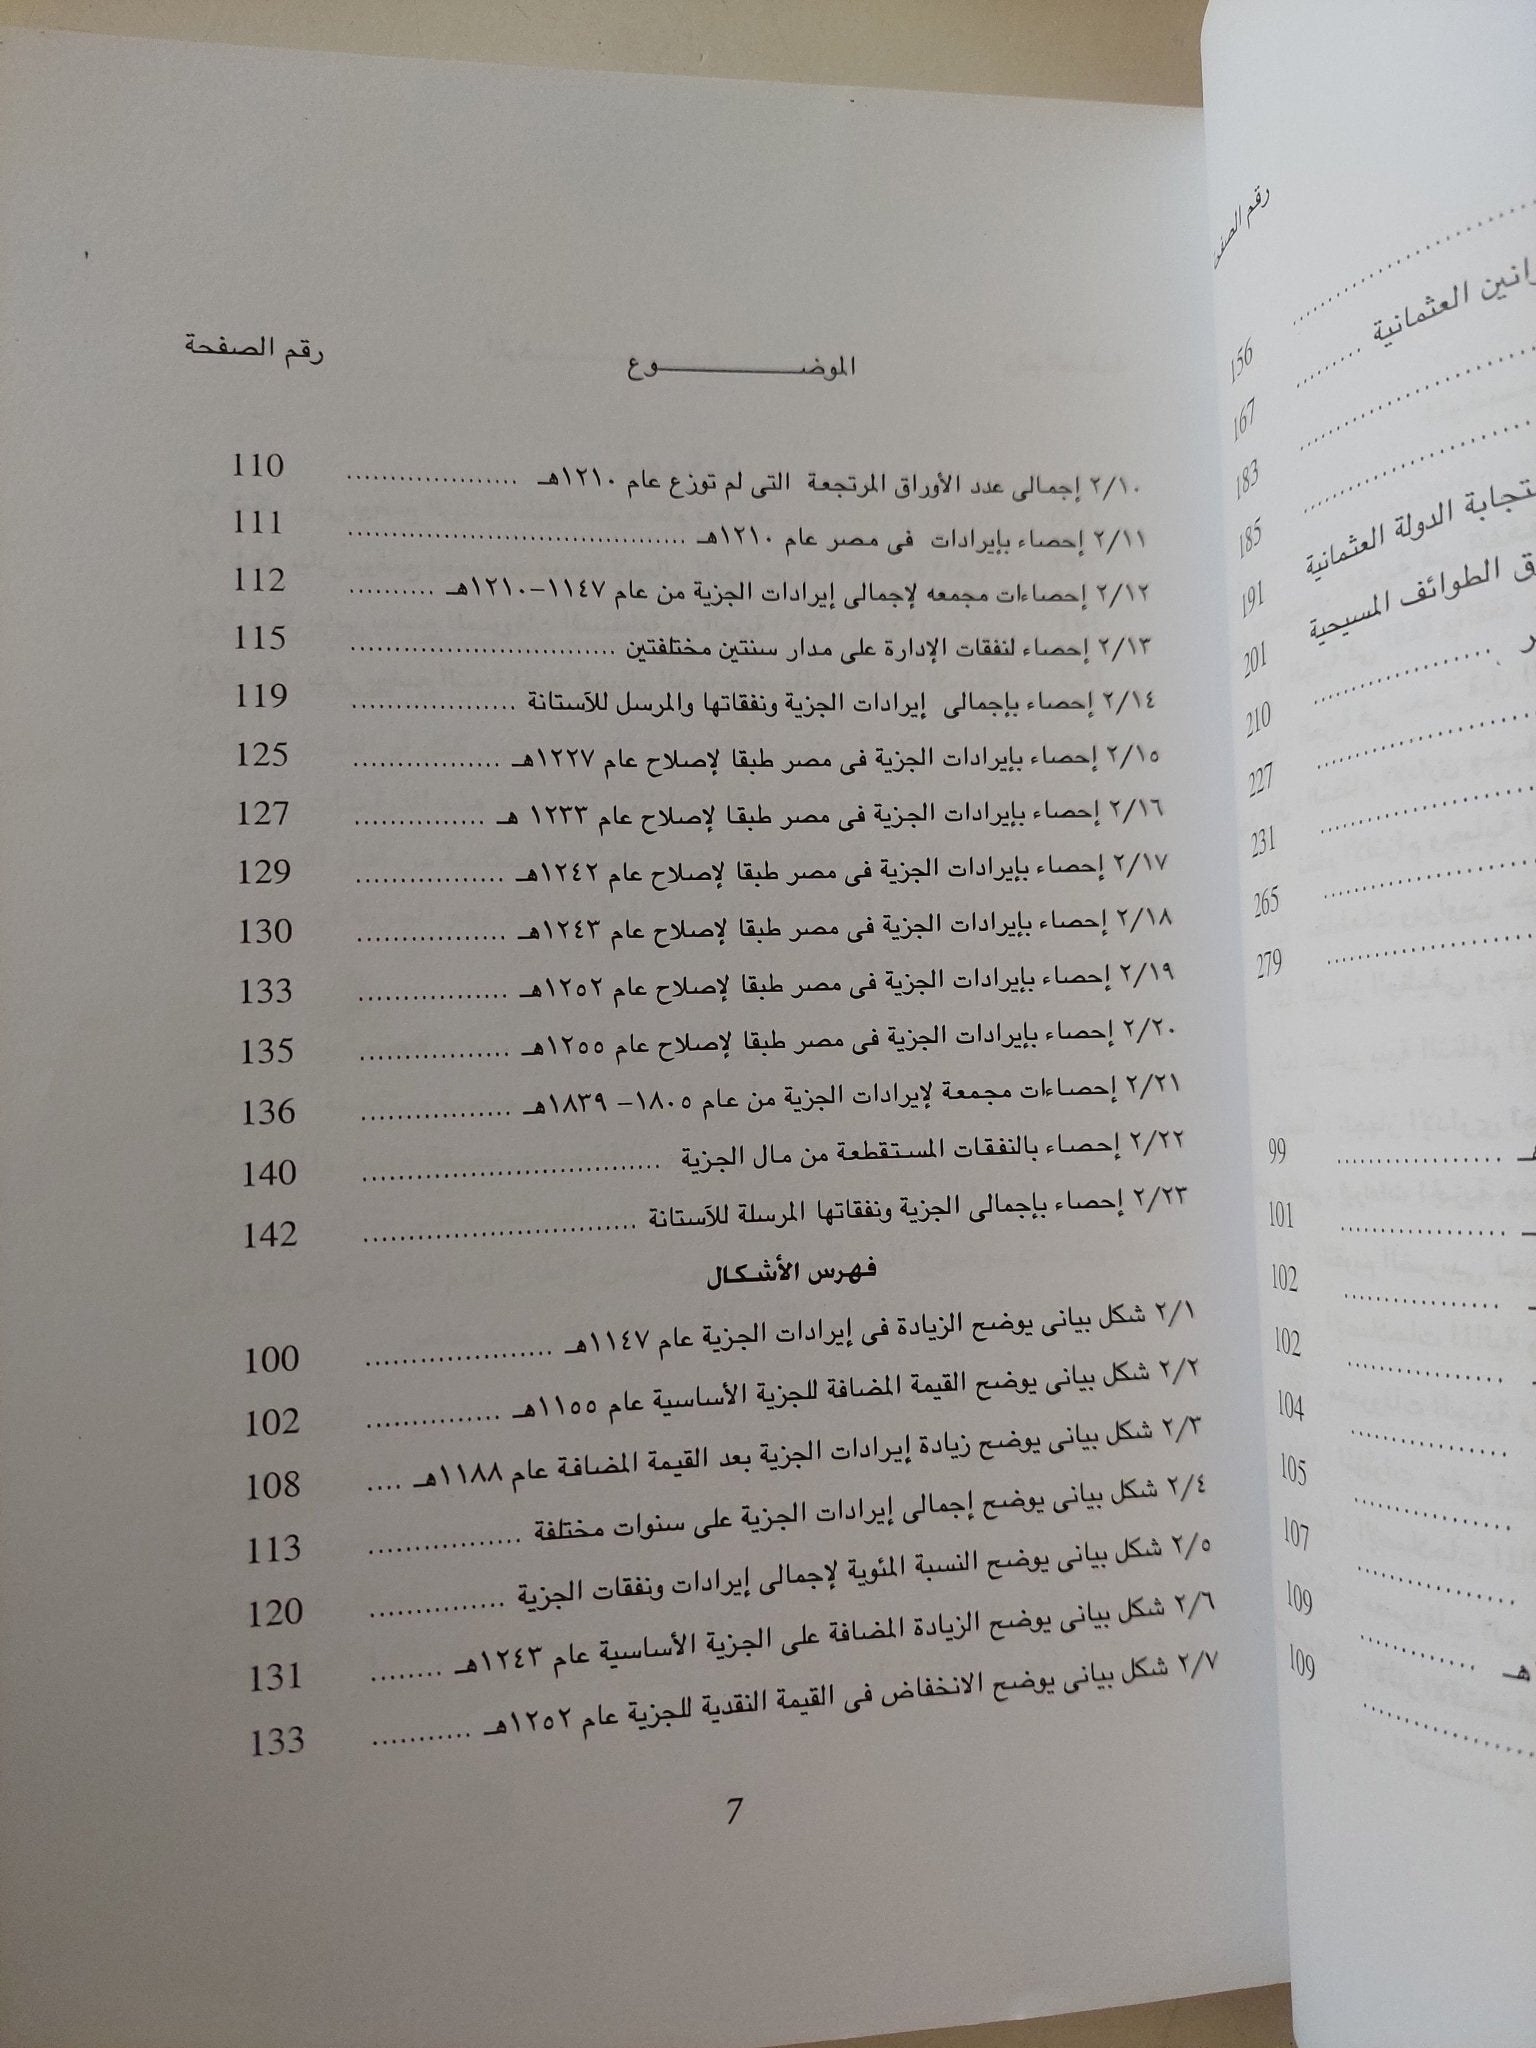 رقم الصفحة
انين العثمانية
156
167
183
185
ستجابة الدولة العثمانية
191
الطوائف المسيحية
201
210
227
231
265
279
99
101
102
102
104
105
107
109
109
الموضـــــــــوع رقم الصفحة
٢/١٠ إجمالى عدد الأوراق المرتجعة التى لم توزع عام ١٢١٠هـ .................... 110
٢/١١ إحصاء بإيرادات فى مصر عام ١٢١٠هـ .................... 111
٢/١٢ إحصاءات مجمعه لإجمالى إيرادات الجزية من عام ١١٤٧-١٢١٠هـ .......... 112
٢/١٣ إحصاء لنفقات الإدارة على مدار سنتين مختلفتين .................... 115
٢/١٤ إحصاء بإجمالى إيرادات الجزية ونفقاتها والمرسل للآستانة .................... 119
٢/١٥ إحصاء بإيرادات الجزية فى مصر طبقا لإصلاح عام ١٢٢٧هـ ................. 125
٢/١٦ إحصاء بإيرادات الجزية فى مصر طبقا لإصلاح عام ١٢٣٣ هـ ............... 127
٢/١٧ إحصاء بإيرادات الجزية فى مصر طبقا لإصلاح عام ١٢٤٢هـ ................. 129
٢/١٨ إحصاء بإيرادات الجزية فى مصر طبقا لإصلاح عام ١٢٤٣هـ ................. 130
٢/١٩ إحصاء بإيرادات الجزية فى مصر طبقا لإصلاح عام ١٢٥٢هـ ................. 133
٢/٢٠ إحصاء بإيرادات الجزية فى مصر طبقا لإصلاح عام ١٢٥٥هـ ................. 135
٢/٢١ إحصاءات مجمعة لإيرادات الجزية من عام ١٨٠٥- ١٨٣٩هـ ................. 136
٢/٢٢ إحصاء بالنفقات المستقطعة من مال الجزية .................... 140
٢/٢٣ إحصاء بإجمالى الجزية ونفقاتها المرسلة للآستانة .................... 142
فهرس الأشكال
٢/١ شكل بيانى يوضح الزيادة فى إيرادات الجزية عام ١١٤٧هـ .................... 100
٢/٢ شكل بيانى يوضح القيمة المضافة للجزية الأساسية عام ١١٥٥هـ ............... 102
٢/٣ شكل بيانى يوضح زيادة إيرادات الجزية بعد القيمة المضافة عام ١١٨٨هـ .... 108
٢/٤ شكل بيانى يوضح إجمالى إيرادات الجزية على سنوات مختلفة ................. 113
٢/٥ شكل بيانى يوضح النسبة المئوية لإجمالى إيرادات ونفقات الجزية ............... 120
٢/٦ شكل بيانى يوضح الزيادة المضافة على الجزية الأساسية عام ١٢٤٣هـ ........ 131
٢/٧ شكل بيانى يوضح الانخفاض فى القيمة النقدية للجزية عام ١٢٥٢هـ ........... 133
7